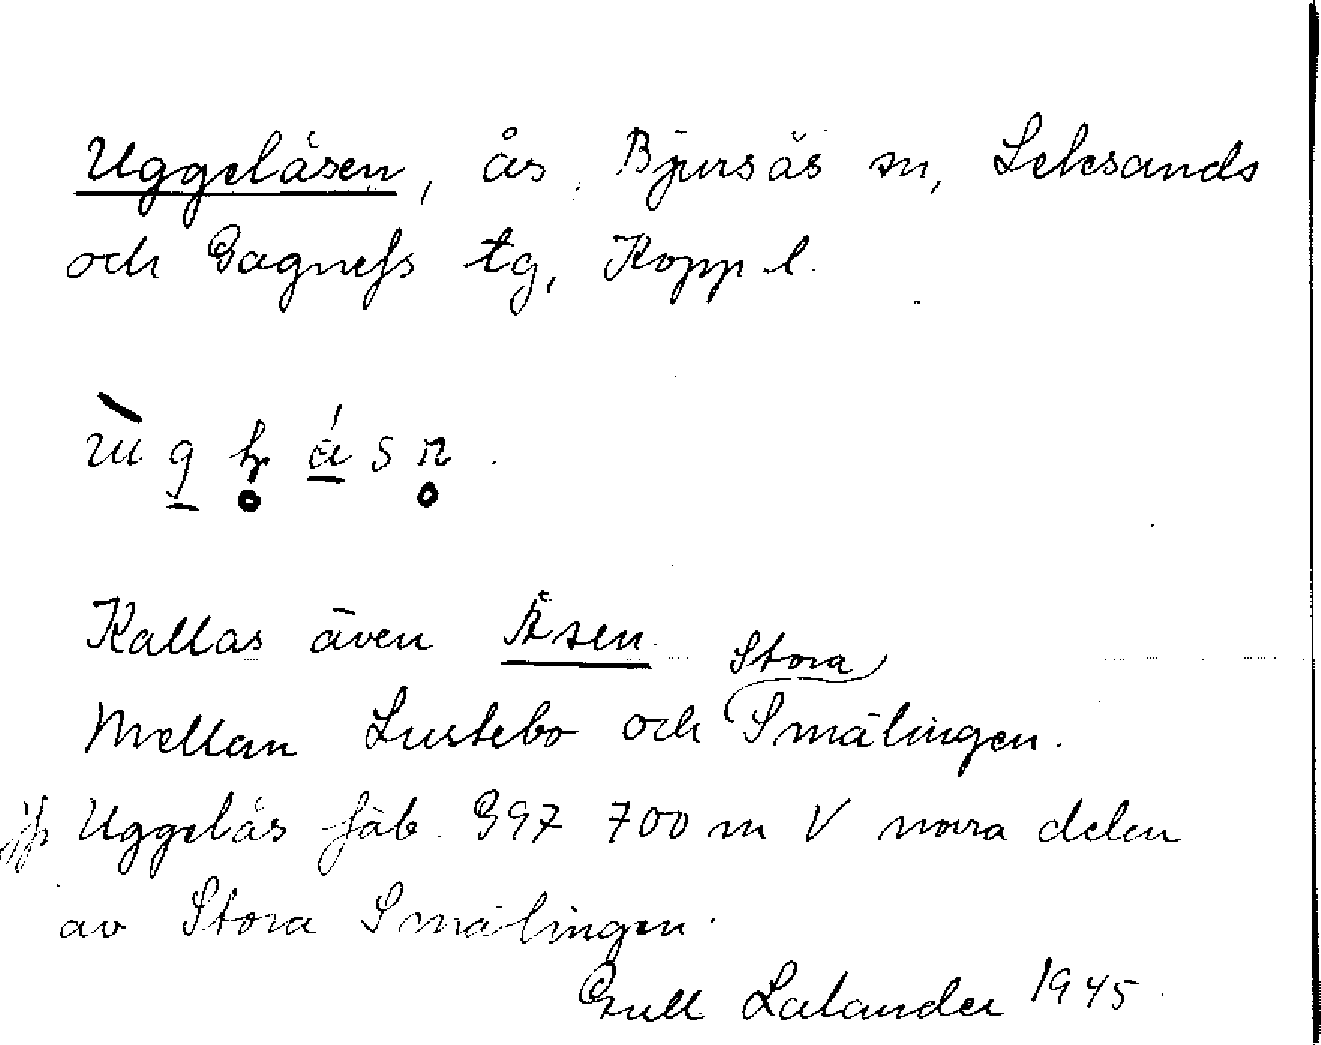 Uggelåsen, ås, Bjursås sn, Leksands
och Gagnefs tg, Kopp. l.
Kallas även Åsen.
Mellan Lustebo och Stora Smälingen.
jfr Uggelås fäb. G97 700 m V norra delen
av Stora Smälingen.
Gull Lalander 1945